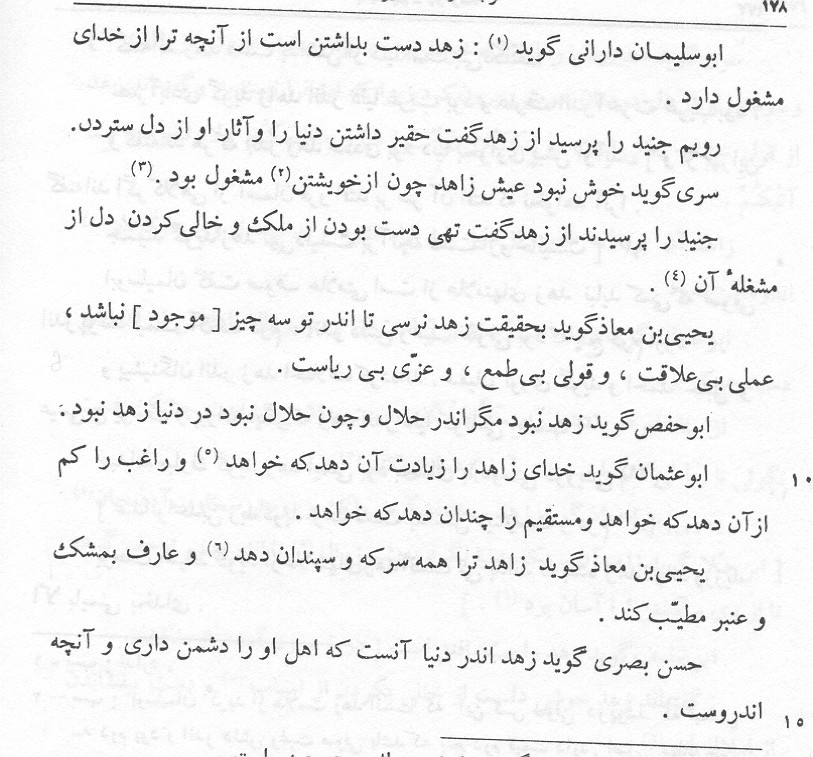 ١٧٨
ابوسلیمان دارانی گوید (١) : زهد دست بداشتن است از آنچه ترا از خدای
مشغول دارد .
رویم جنید را پرسید از زهد گفت حقیر داشتن دنیا را و آثار او از دل ستردن.
سری گوید خوش نبود عیش زاهد چون از خویشتن (٢) مشغول بود . (٣)
جنید را پرسیدند از زهد گفت تهی دست بودن از ملک و خالی کردن دل از
مشغلهٔ آن (٤) .
یحیی بن معاذ گوید بحقیقت زهد نرسی تا اندر تو سه چیز [ موجود ] نباشد ،
عملی بی علاقت ، و قولی بی طمع ، و عزّی بی ریاست .
ابوحفص گوید زهد نبود مگر اندر حلال و چون حلال نبود در دنیا زهد نبود .
١٠ ابوعثمان گوید خدای زاهد را زیادت آن دهد که خواهد (٥) و راغب را کم
از آن دهد که خواهد و مستقیم را چندان دهد که خواهد .
یحیی بن معاذ گوید زاهد ترا همه سرکه و سپندان دهد (٦) و عارف بمشک
و عنبر مطیّب کند .
حسن بصری گوید زهد اندر دنیا آنست که اهل او را دشمن داری و آنچه
١٥ اندروست .